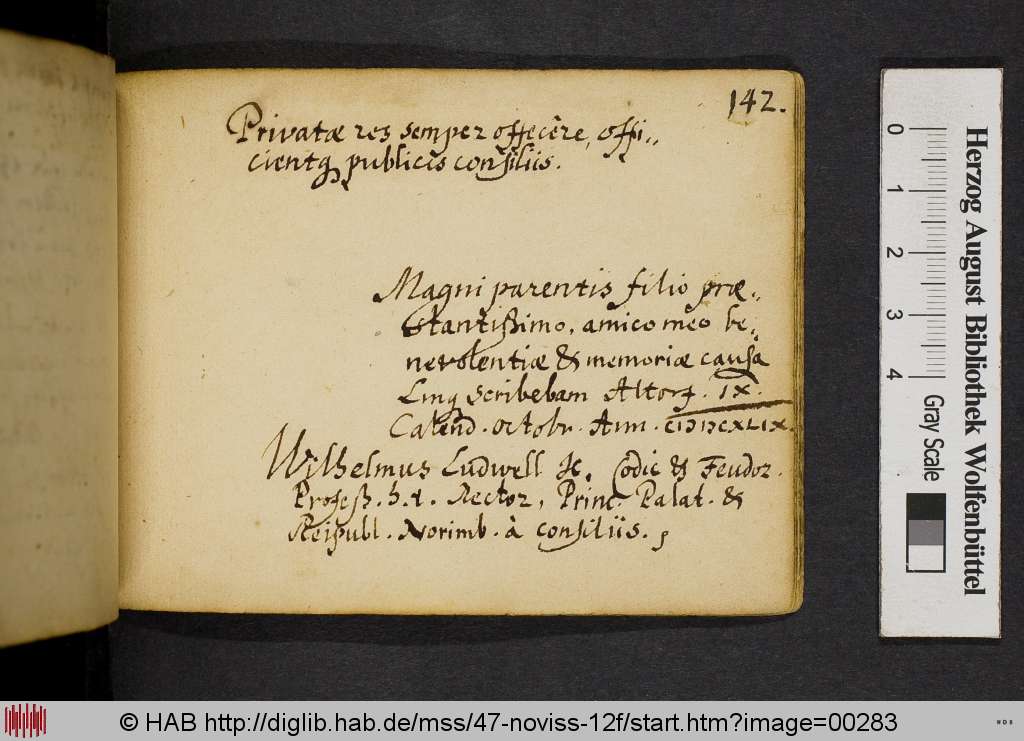 142.
Privatæ res semper offecêre, offi-
cientq publicis consiliis.
Magni parentis filio præ-
stantißimo, amico meo be-
nevolentiæ & memoriæ causa
scribebam Altorf. IX.
Calend. octobr. Ann. CIƆIƆCXLIX.
Wilhelmus Ludwell Codic & Feudor.
Profeß. h.t. Rector, Princ. Palat. &
Reipubl. Norimb. à consiliis.
0 1 2 3 4
Gray Scale
Herzog August Bibliothek Wolfenbüttel
© HAB http://diglib.hab.de/mss/47-noviss-12f/start.htm?image=00283